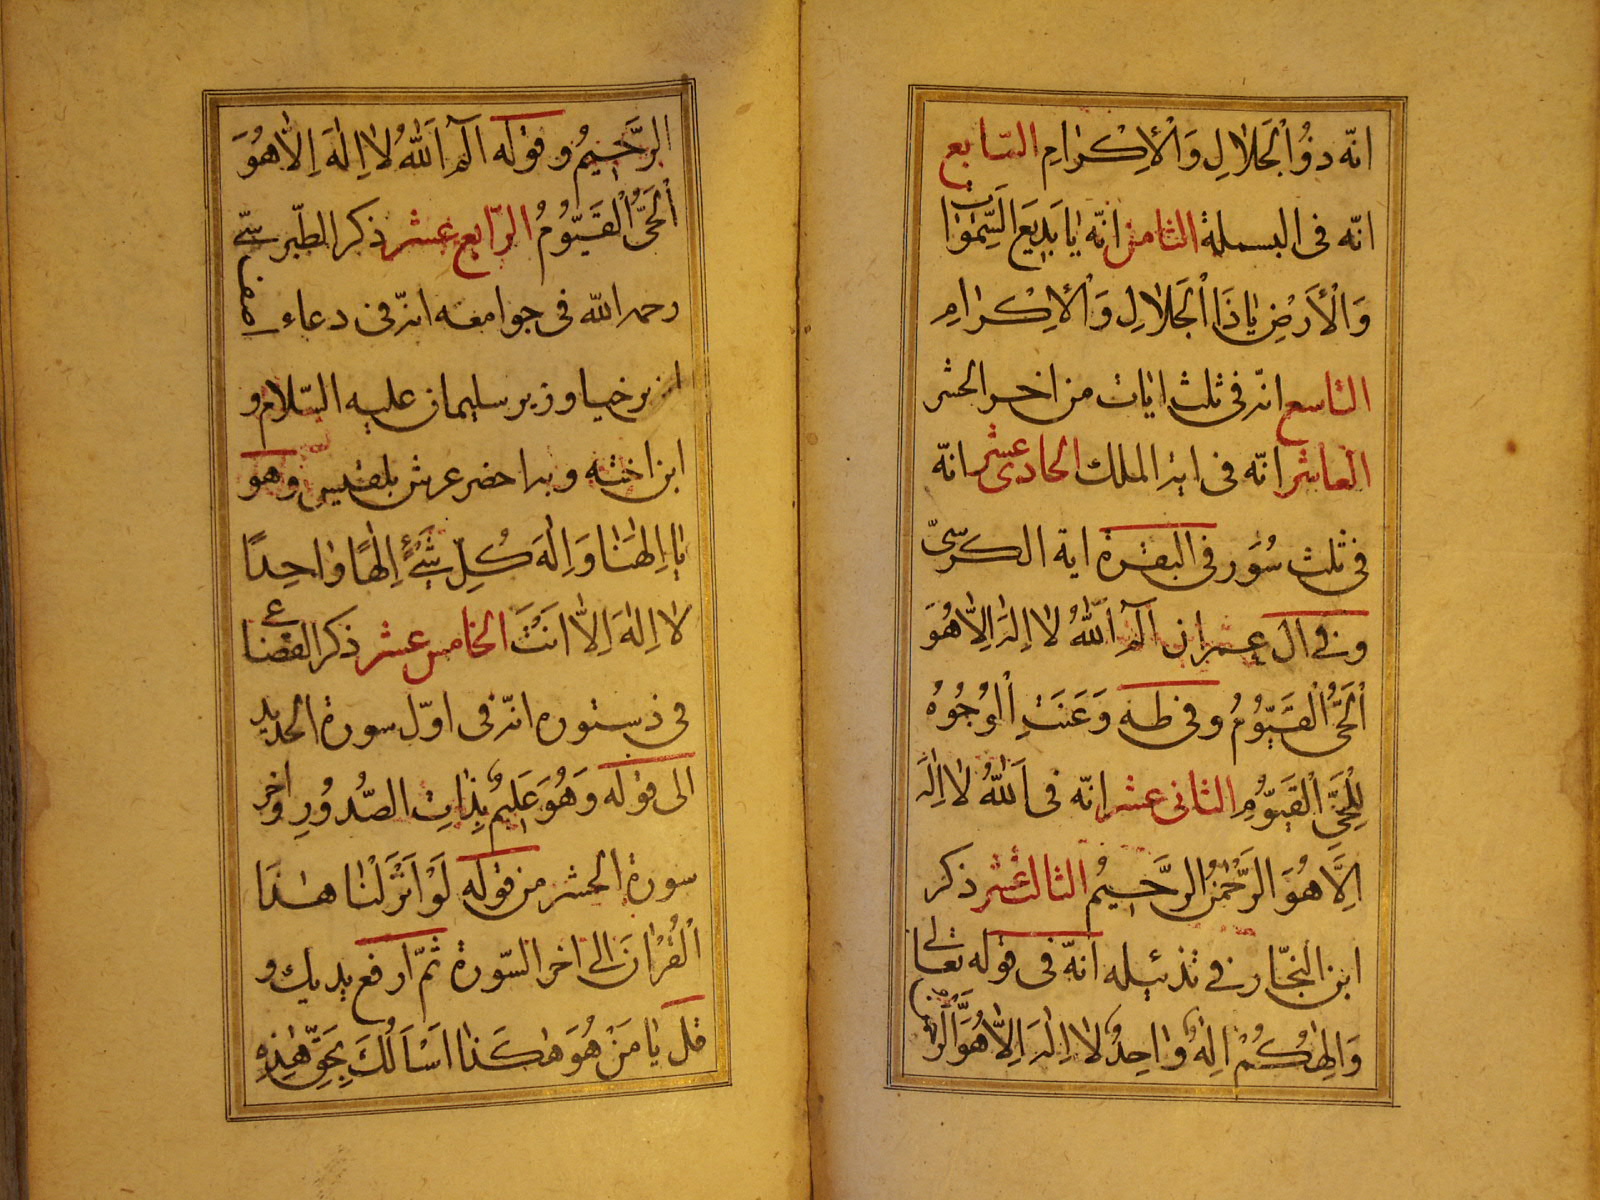 انّه ذوُالْجَلالِ وَالْاِكْرامِ السّابع
انّه فى البسملة الثامن انّه يا بَديعَ السَّمٰواتِ
وَالْأَرْضِ يٰا ذَا الْجَلالِ وَالْاِكْرامِ
التاسع انّه فى ثلث ايات من اخر الحشر
العاشر انّه فى اية الملك الحادى عشر انّه
فى ثلث سُوَر فى البقرة اية الكرسىّ
وفى ال عمران الٓمٓ اَللّٰهُ لا اِلٰهَ اِلَّا هُوَ
اَلْحَىُّ الْقَيّوُمُ وفى طه وَعَنَتِ الْوُجُوهُ
لِلْحَىِّ الْقَيّوُمِ الثانى عشر انّه فى اَللّٰهُ لا اِلٰهَ
اِلَّا هُوَ الرَّحْمٰنُ الرَّحيمُ الثالث عشر ذكر
ابن النجّار فى تذئيله انّه فى قوله تعالى
وَاِلٰهُكُمْ اِلٰهٌ وٰاحِدٌ لا اِلٰهَ اِلّا هُوَ الرَّحْمٰنُ
الرَّحيمُ وقوله الٓمٓ اَللّٰهُ لا اِلٰهَ اِلّا هُوَ
اَلْحَىُّ الْقَيّوُمُ الرّابع عشر ذكر الطّبرسىّ
رحمه الله فى جوامعه انّه فى دعاء اصف
بن برخيا وزير سليمان عليه السّلام و
ابن اخته وبه احضر عرش بلقيس وهو
يٰا اِلٰهَنا وَاِلٰهَ كُلِّ شَىْءٍ اِلٰهًا وٰاحِدًا
لا اِلٰهَ اِلّا اَنْتَ الخامس عشر ذكر القضاعى
فى دستوره انّه فى اوّل سورة الحديد
الى قوله وَهُوَ عَليمٌ بِذاتِ الصُّدُورِ واخر
سورة الحشر من قوله لَوْ اَنْزَلْنا هٰذَا
الْقُرْاٰنَ الى اخر السّورة ثمّ ارفع يديك و
قل يٰا مَنْ هُوَ هٰكَذا اَسْاَلُكَ بِحَقِّ هٰذِهِ